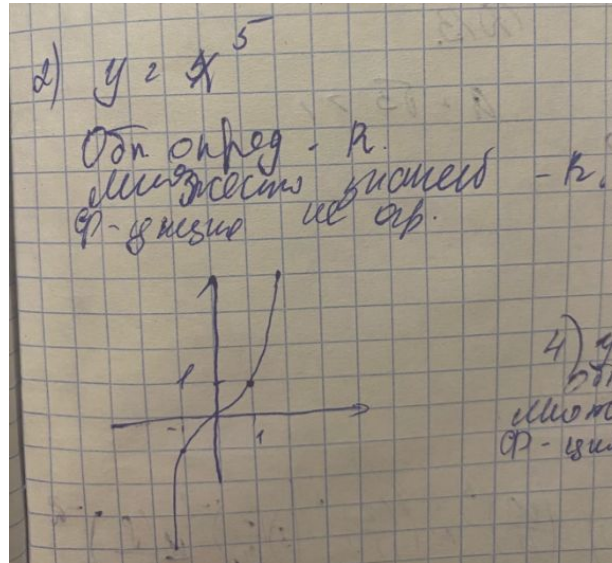 2) y = x⁵
Обл опред - R.
Множество значений - R.
Ф-ция не огр.
1
-1
1
4) y
Обл
Множ
Ф-ция